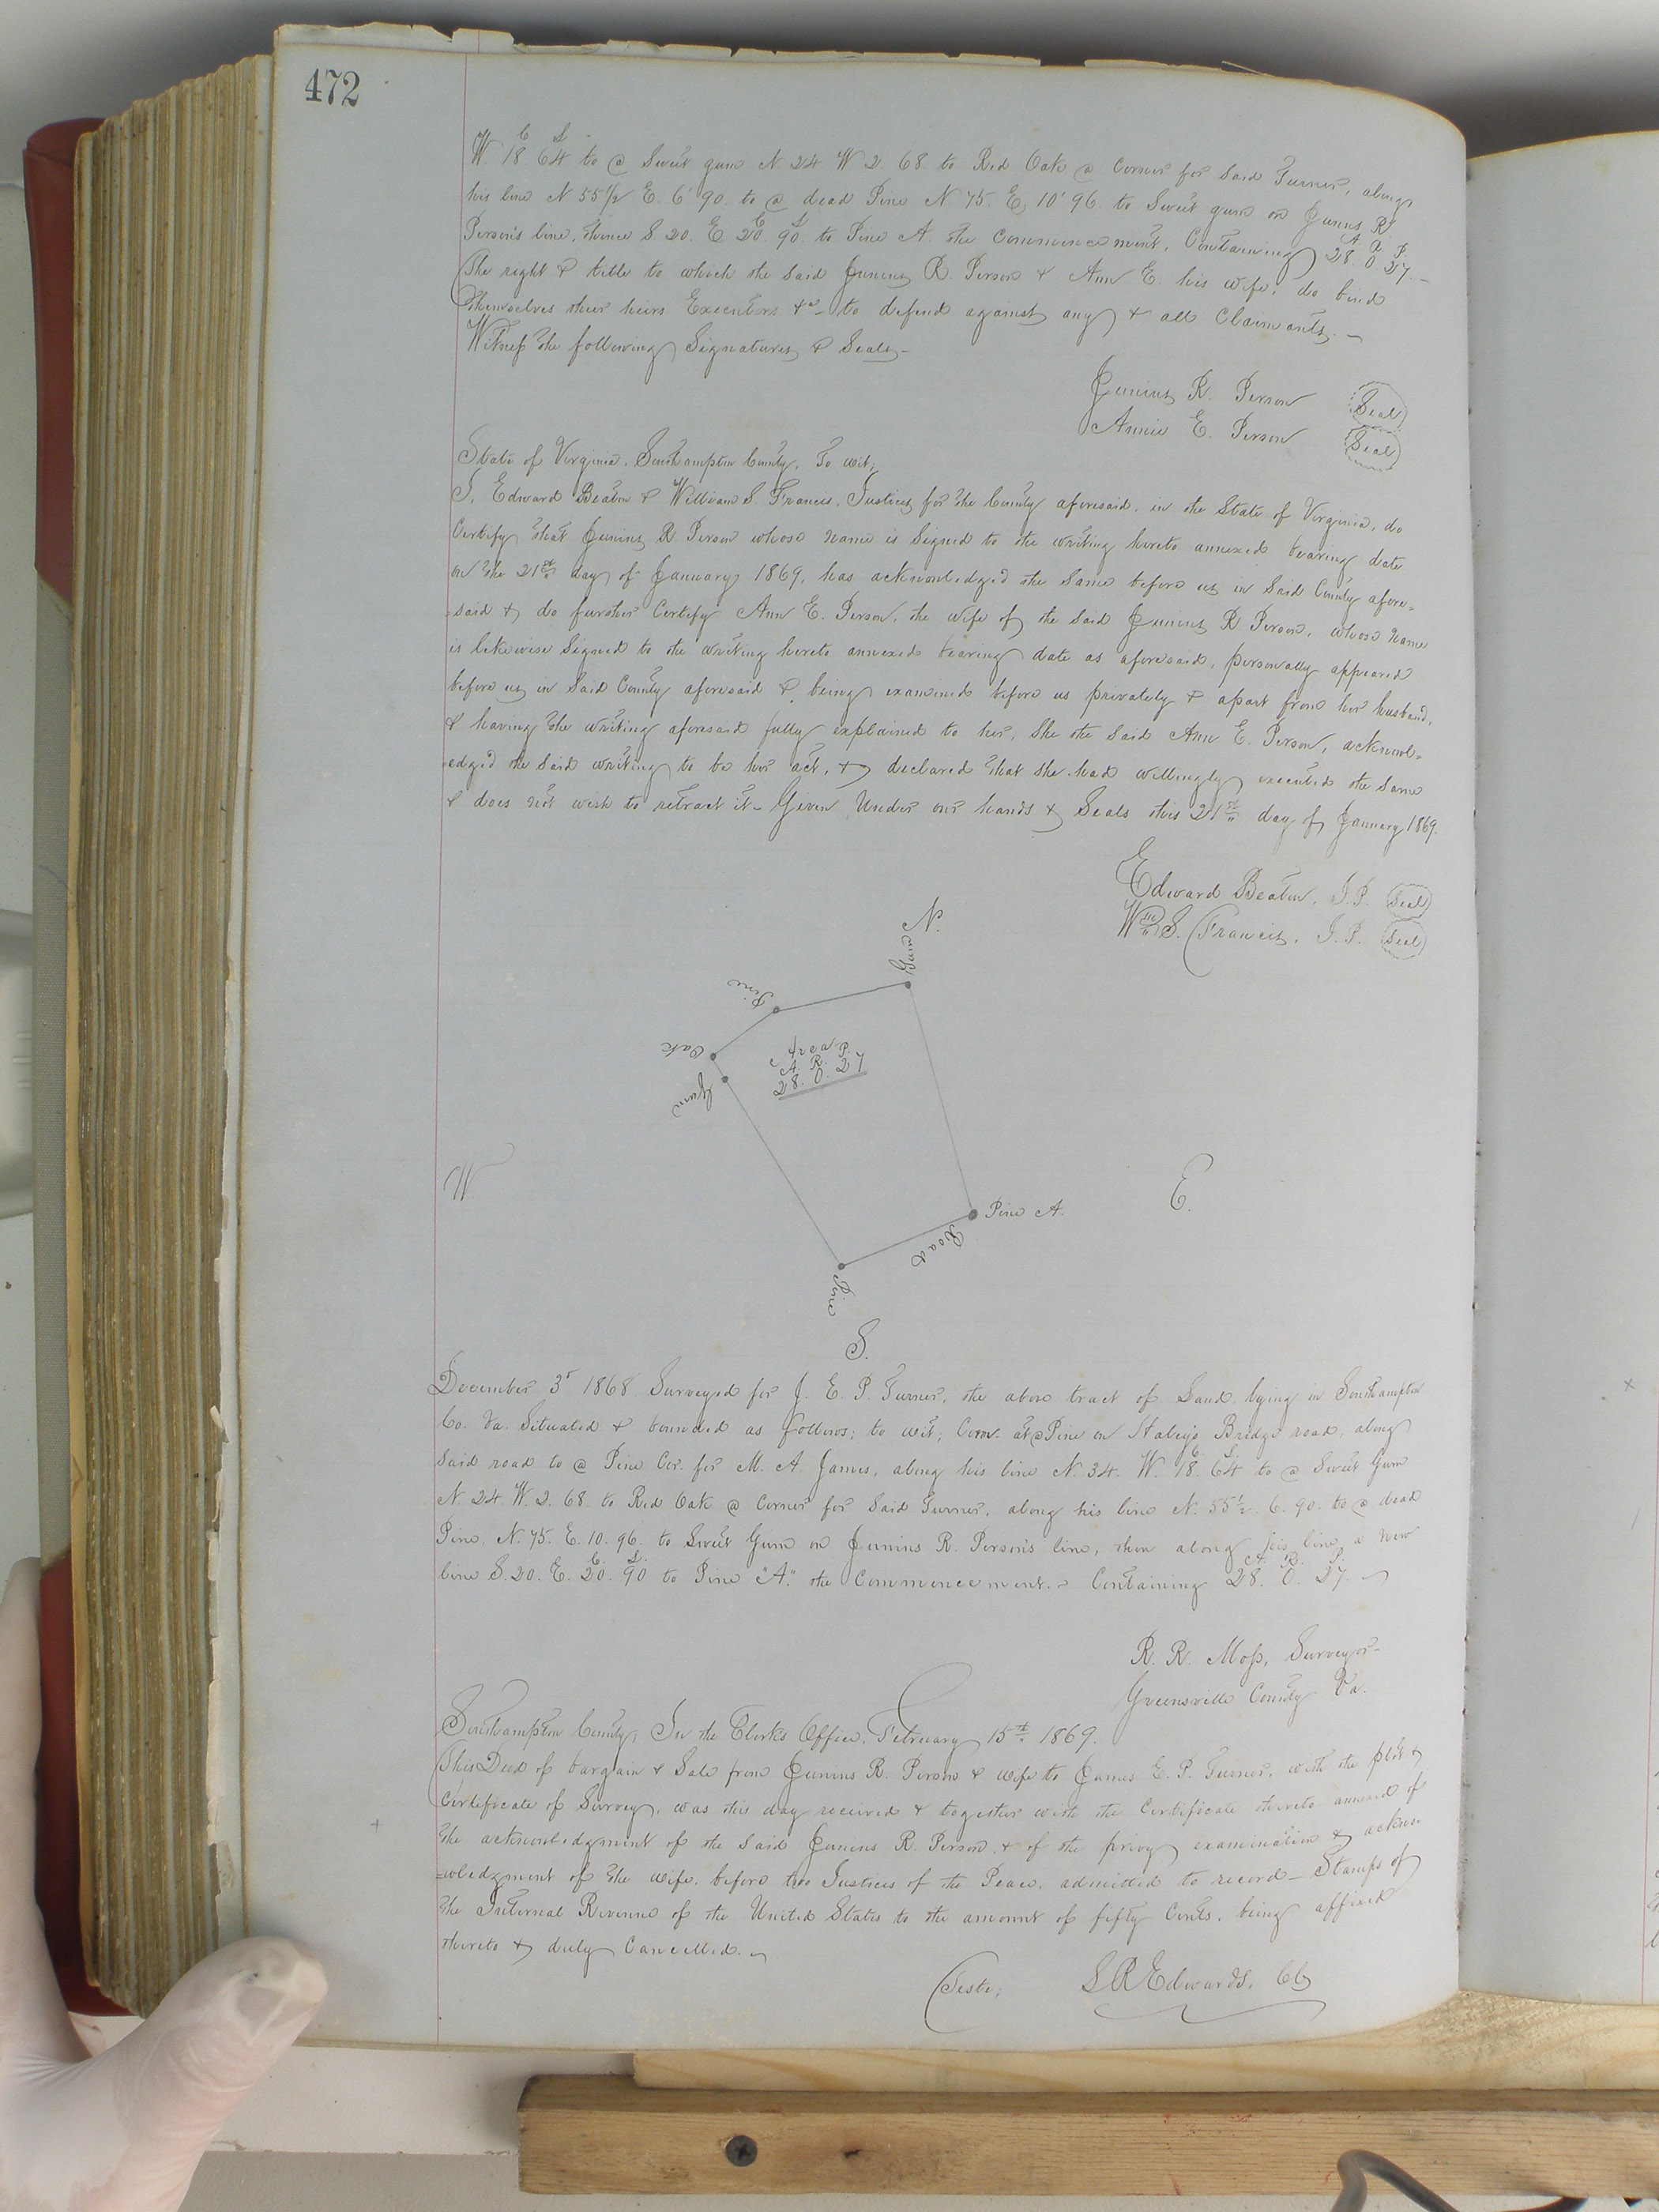 472
C L
W. 18 64 to a Sweet gum N 24 W 2. 68. to Red Oak a Corner for said Turner, along
his line N 55 1/2 E. 6 90. to a dead Pine N 75. E, 10 96. to Sweet gum on Junius R
C L A R P.
Person's line, thence S. 20. E 20 90. to Pine A. the Commencement, Containing 28. 0 27. —
The right & title to which the said Junius R. Person & Ann E. his wife, do bind
themselves their heirs Executors &c - to defend against any & all Claimants. —
Witness the following Signatures & Seals —
Junius R. Person Seal
Annie E. Person Seal
State of Virginia. Southampton County, To wit;
I, Edward Beaton & William S. Francis, Justices for the County aforesaid, in the State of Virginia, do
Certify that Junius R Person whose name is Signed to the writing hereto annexed bearing date
on the 21st day of January 1869, has acknowledged the same before us in said County afore=
=said & do further Certify Ann E. Person, the wife of the said Junius R Person, whose name
is likewise Signed to the writing hereto annexed bearing date as aforesaid, personally appeared
before us in said County aforesaid & being examined before us privately & apart from her husband,
& having the writing aforesaid fully explained to her, She the said Ann E. Person, acknowl=
=edged the said writing to be her act, & declared that she had willingly executed the same
& does not wish to retract it — Given Under our hands & Seals this 21st day of January 1869.
Edward Beaton, J.P. Seal
Wm S. Francis, J.P. Seal
N.
Gum
Pine
Oak
Area
A. R. P.
28. 0. 27
Gum
W
E.
Pine A.
Road
Pine
S.
December 3d 1868. Surveyed for J. E. P. Turner, the above tract of Land lying in Southampton
Co. Va. Situated & bounded as follows; to wit; Com. at a Pine on Haley's Bridge road, along
C. L.
said road to a Pine Cor. for M. A. James, along his line N. 34. W. 18. 64 to a Sweet Gum
N. 24. W. 2. 68. to Red Oak a Corner for said Turner, along his line N. 55 1/2. 6. 90. to a dead
Pine, N. 75. E. 10. 96. to Sweet Gum on Junius R. Person's line, then along his line a new
C. L. A. R. P.
line S. 20. E. 20. 90 to Pine "A." the Commencement. - Containing 28. 0. 27. —
R. R. Moss, Surveyor -
Greensville County Va.
Southampton County; In the Clerk's Office, February 15th 1869.
This Deed of bargain & Sale from Junius R. Person & wife to James E. P. Turner, with the plot &
Certificate of Survey, was this day received & together with the Certificate thereto annexed of
the acknowledgment of the said Junius R. Person & of the privy examination & ackno=
=wledgment of the wife, before two Justices of the Peace, admitted to record — Stamps of
the Internal Revenue of the United States to the amount of fifty Cents, being affixed
thereto & duly Cancelled. —
Teste; L R Edwards, Clk